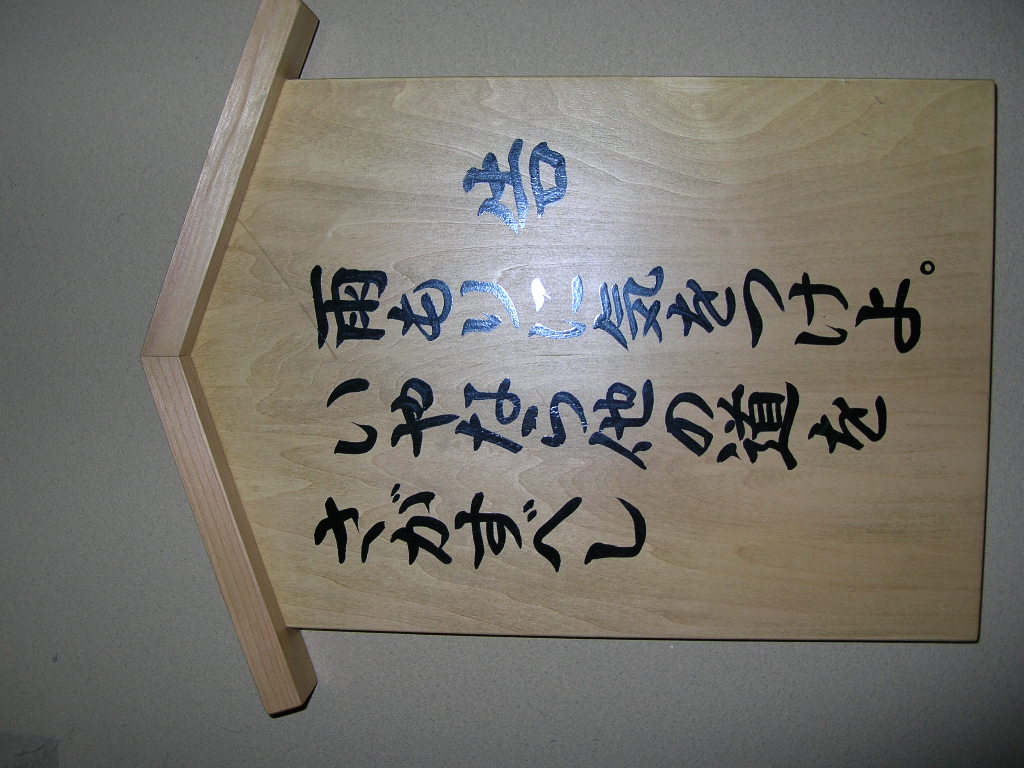 告
雨もりに気をつけよ。
いやなら他の道を
さがすべし